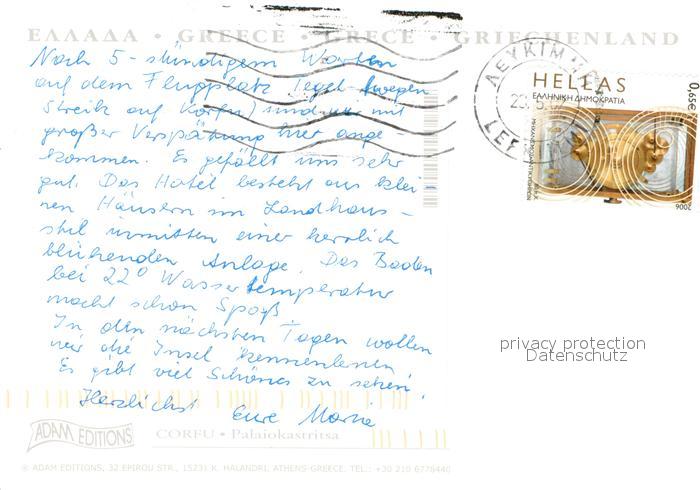 ΕΛΛΑΔΑ • GREECE • GRECE • GRIECHENLAND
Nach 5-stündigem Warten
auf dem Flugplatz Tegel (wegen
Streik auf Korfu) sind wir mit
großer Verspätung hier ange-
kommen. Es gefällt uns sehr
gut. Das Hotel besteht aus klei
nen Häusern im Landhaus-
stil inmitten einer herrlich
blühenden Anlage. Das Baden
bei 22° Wassertemperatur
macht schon Spaß
In den nächsten Tagen wollen
wir die Insel kennenlernen
Es gibt viel Schönes zu sehen.
Herzlichst Eure Maria
ADAM EDITIONS
CORFU • Palaiokastritsa
© ADAM EDITIONS, 32 EPIROU STR., 15231 K. HALANDRI, ATHENS-GREECE. TEL.: +30 210 6778440
ΛΕΥΚΙΜ
23.5.
LEF
HELLAS
ΕΛΛΗΝΙΚΗ ΔΗΜΟΚΡΑΤΙΑ
0,65€
2006
privacy protection
Datenschutz